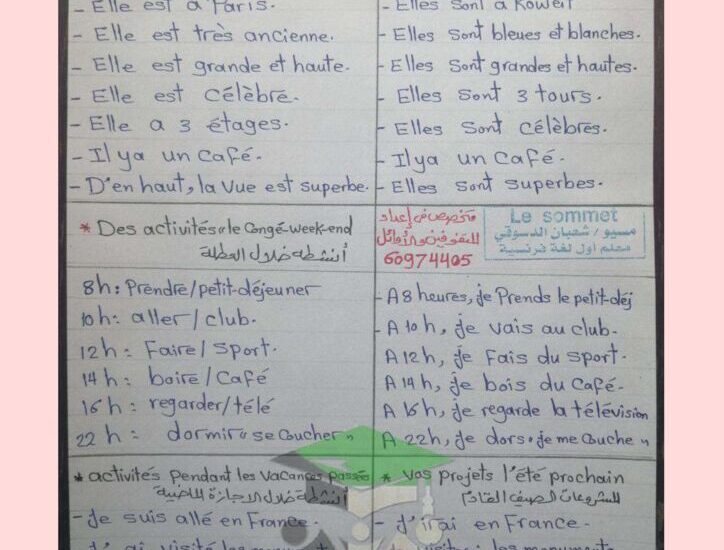 - Elle est à Paris.
- Elle est très ancienne.
- Elle est grande et haute.
- Elle est célèbre.
- Elle a 3 étages.
- Il ya un café.
- D'en haut, la vue est superbe.
- Elles sont à Koweït
- Elles sont bleues et blanches.
- Elles sont grandes et hautes.
- Elles sont 3 tours.
- Elles sont célèbres.
- Il ya un café.
- Elles sont superbes.
* Des activités "le congé-week-end
أنشطة خلال العطلة
متخصص فى إعداد
المتفوقين والأوائل
60974405
Le sommet
مسيو / شعبان الدسوقي
معلم أول لغة فرنسية
8h: Prendre/petit-déjeuner
10h: aller / club.
12h: Faire / sport.
14h: boire / Café
16h: regarder/télé
22h: dormir "se coucher"
- A 8 heures, je Prends le petit-déj
- A 10h, je vais au club.
- A 12h, je Fais du sport.
- A 14h, je bois du café.
A 16h, je regarde la télévision
A 22h, je dors. je me couche "
* activités pendant les vacances passées
أنشطة خلال الاجازة الماضية
- Je suis allé en France.
- J'ai visité les
* vos projets l'été prochain
المشروعات الصيف القادم
- J'irai en France.
les monuments